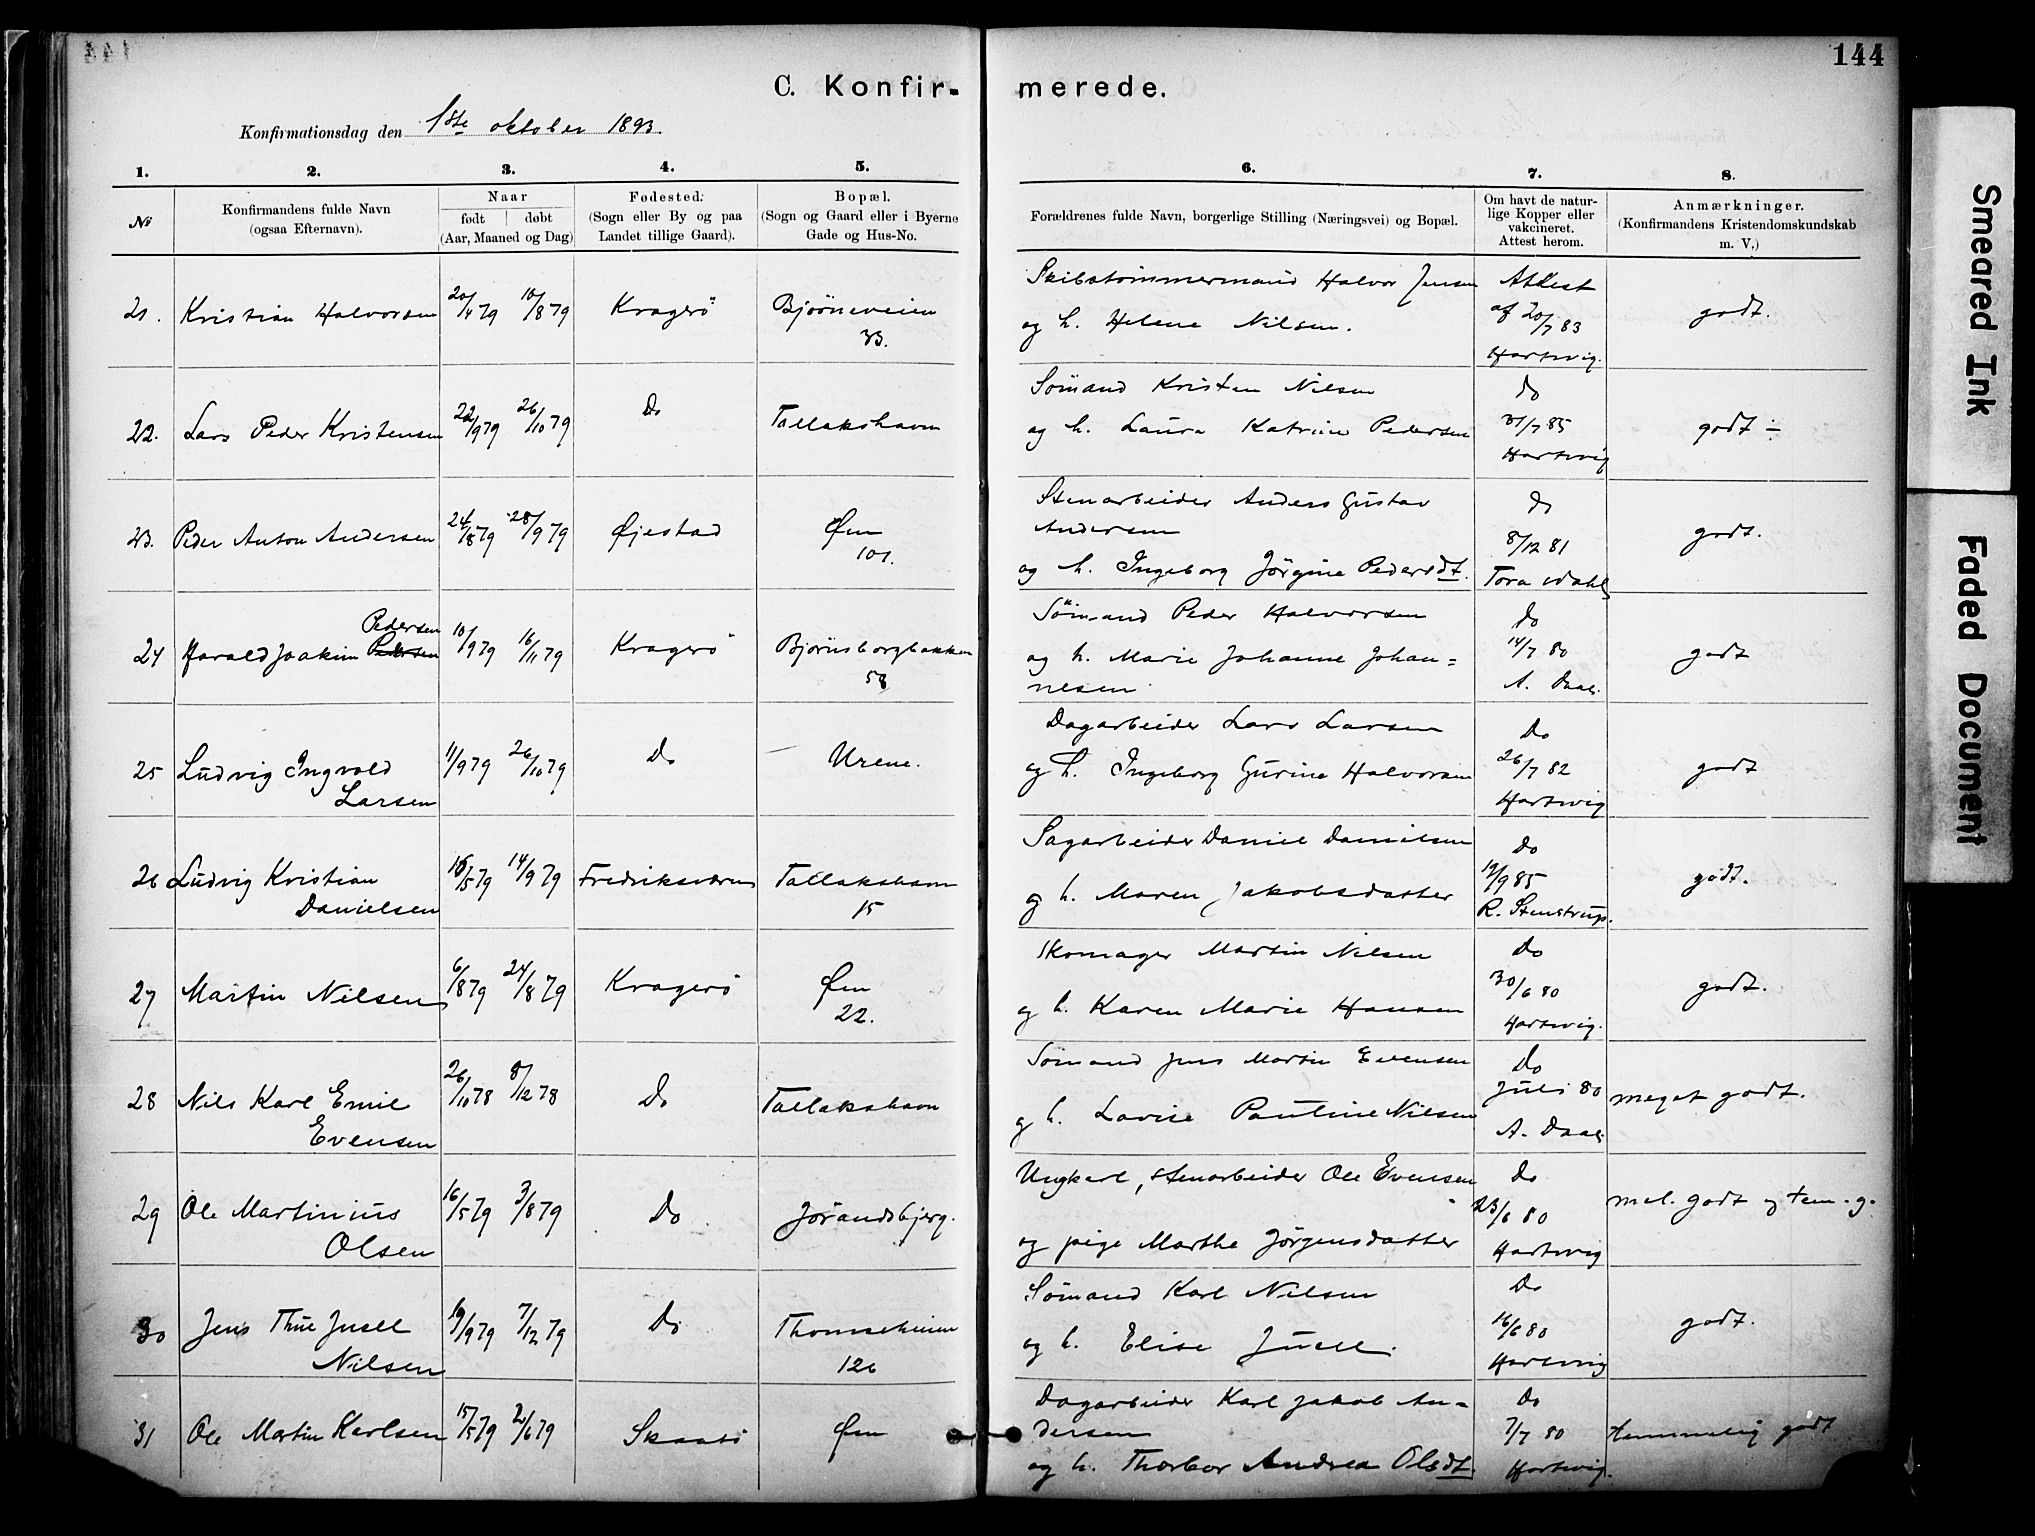 144
C. Konfir-
merede.
Konfirmationsdag den 1ste oktober 1893.
1. 2. 3. 4. 5. 6. 7. 8.
№
Konfirmandens fulde Navn
(ogsaa Efternavn).
Naar
født døbt
(Aar, Maaned og Dag)
Fødested.
(Sogn eller By og paa
Landet tillige Gaard).
Bopæl.
(Sogn og Gaard eller i Byerne
Gade og Hus-No.
Forældrenes fulde Navn, borgerlige Stilling (Næringsvei) og Bopæl.
Om havt de natur-
lige Kopper eller
vakcineret.
Attest herom.
Anmærkninger.
(Konfirmandens Kristendomskundskab
m. V.)
21. Kristian Halvorsen 20/4 79 10/8 79 Kragerö Bjørneveien
33.
Skibstømmermand Halvor Jensen
og h. Helene Nilsen.
Attest
af 20/7 83
Hartwig.
godt.
22. Lars Peder Kristensen 22/9 79 26/10 79 Do Tallakshavn
Sömand Kristen Nilsen
og h. Laura Katrine Pedersen
do
31/7 85
Hartwig
godt ÷
23. Peder Anton Andersen 24/8 79 28/9 79 Øjestad Øen
101.
Stenarbeider Anders Gustav
Andersen
og h. Ingeborg Jörgine Pedersdt.
do
8/12 81
Tora
godt.
Pedersen
24 Harald Joakim Pedersen 10/9 79 16/11 79 Kragerö Bjørnsborgbakken
58
Sömand Peder Halvorsen
og h. Marie Johanne Johan=
nesen
do
14/7 80
A. Daae.
godt
25 Ludvig Ingvald
Larsen
11/9 79 26/10 79 Do Urene.
Dagarbeider Lars Larsen
og h. Ingeborg Gurine Halvorsen
Do
26/7 82
Hartwig
godt
26 Ludvig Kristian
Danielsen
16/5 79 14/9 79 Fredriksværn Tallakshavn
15
Sagarbeider Daniel Danielsen
og h. Maren Jakobsdatter
Do
12/9 85
R. Stenstrup.
godt.
27 Martin Nilsen 6/8 79 24/8 79 Kragerö Øen
22.
Skomager Martin Nilsen
og h. Karen Marie Hansen
Do
30/6 80
Hartwig.
godt.
28 Nils Karl Emil
Evensen
26/10 78 8/12 78 Do Tallakshavn
Sömand Jens Martin Evensen
og h. Lovise Pauline Nilsen
Do
Juli 80
A. Daae
meget godt.
29 Ole Martinius
Olsen
16/5 79 3/8 79 Do Jørandsbjerg.
Ungkarl, stenarbeider Ole Evensen
og pige Marthe Jörgensdatter
Do
23/6 80
Hartwig
mel. godt og tem. g.
30 Jens Thue Juell
Nilsen
19/9 79 7/12 79 Do Thomseheien
126
Sömand Karl Nilsen
og h. Elise Juell.
Do
16/6 80
Hartwig
godt.
31 Ole Martin Karlsen 15/5 79 2/6 79 Skaatö Øen
Dagarbeider Karl Jakob An=
dersen
og h. Thorbor Andrea Olsdt.
Do
7/7 80
Hartwig.
temmelig godt
Smeared Ink
Faded Document